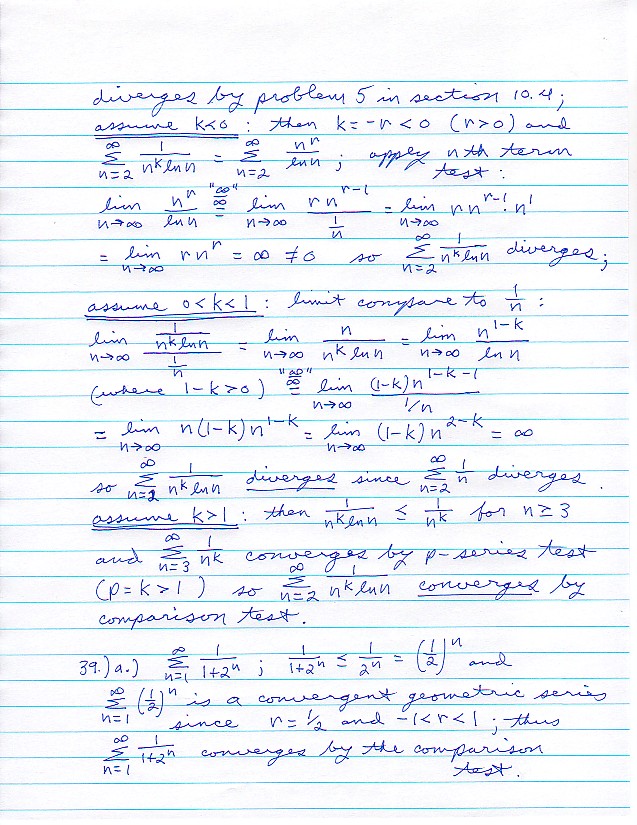 diverges by problem 5 in section 10.4;
assume k<0 : then k = -r < 0 (r>0) and
∑_{n=2}^{∞} 1/(n^k ln n) = ∑_{n=2}^{∞} n^r/(ln n) ; apply nth term test :
lim_{n→∞} n^r/(ln n) "∞/∞" = lim_{n→∞} (r n^{r-1})/(1/n) = lim_{n→∞} r n^{r-1} · n^1
= lim_{n→∞} r n^r = ∞ ≠ 0 so ∑_{n=2}^{∞} 1/(n^k ln n) diverges;
assume 0<k<1 : limit compare to 1/n :
lim_{n→∞} (1/(n^k ln n))/(1/n) = lim_{n→∞} n/(n^k ln n) = lim_{n→∞} n^{1-k}/(ln n)
(where 1-k>0) "∞/∞" = lim_{n→∞} ((1-k) n^{1-k-1})/(1/n)
= lim_{n→∞} n(1-k) n^{1-k} = lim_{n→∞} (1-k) n^{2-k} = ∞
so ∑_{n=2}^{∞} 1/(n^k ln n) diverges since ∑_{n=2}^{∞} 1/n diverges.
assume k>1 : then 1/(n^k ln n) ≤ 1/n^k for n ≥ 3
and ∑_{n=3}^{∞} 1/n^k converges by p-series test
(p = k > 1) so ∑_{n=2}^{∞} 1/(n^k ln n) converges by
comparison test.
39.) a.) ∑_{n=1}^{∞} 1/(1+2^n) ; 1/(1+2^n) ≤ 1/2^n = (1/2)^n and
∑_{n=1}^{∞} (1/2)^n is a convergent geometric series
since r = 1/2 and -1<r<1 ; thus
∑_{n=1}^{∞} 1/(1+2^n) converges by the comparison
test.